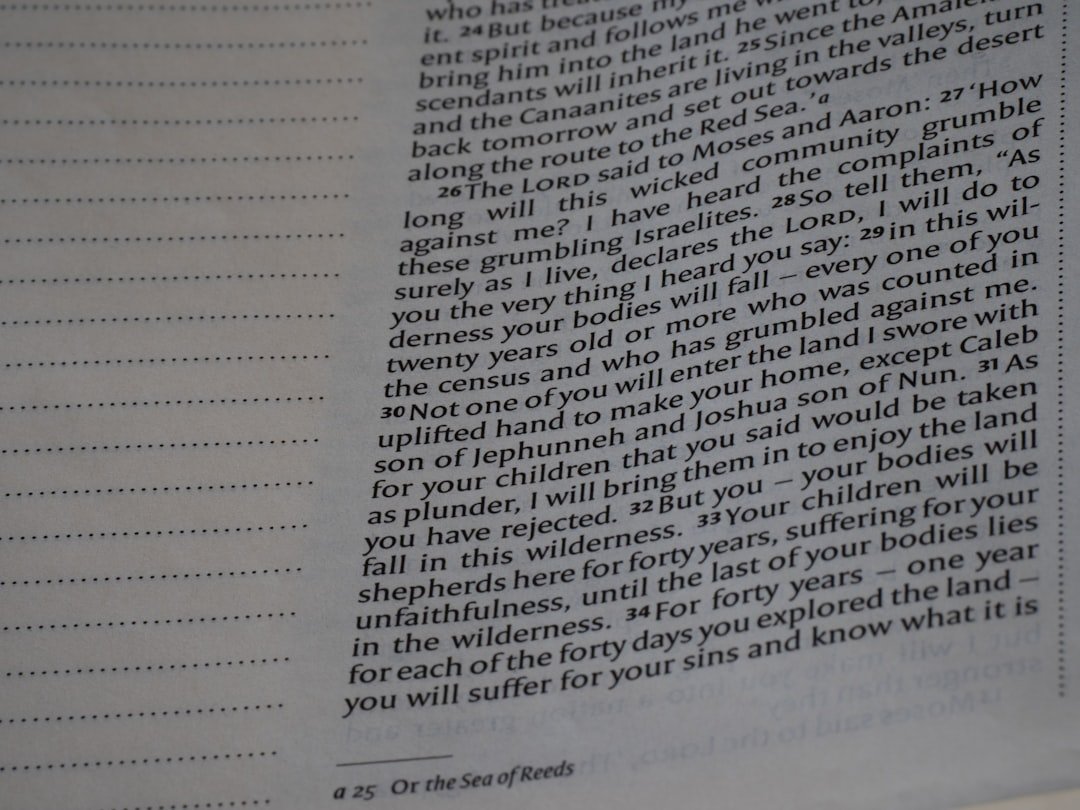 who has
it. 24 But because my
ent spirit and follows me
bring him into the land he went to,
scendants will inherit it. 25 Since the Amalek
and the Canaanites are living in the valleys, turn
back tomorrow and set out towards the desert
along the route to the Red Sea.’ a
26 The LORD said to Moses and Aaron: 27 ‘How
long will this wicked community grumble
against me? I have heard the complaints of
these grumbling Israelites. 28 So tell them, “As
surely as I live, declares the LORD, I will do to
you the very thing I heard you say: 29 in this wil-
derness your bodies will fall – every one of you
twenty years old or more who was counted in
the census and who has grumbled against me.
30 Not one of you will enter the land I swore with
uplifted hand to make your home, except Caleb
son of Jephunneh and Joshua son of Nun. 31 As
for your children that you said would be taken
as plunder, I will bring them in to enjoy the land
you have rejected. 32 But you – your bodies will
fall in this wilderness. 33 Your children will be
shepherds here for forty years, suffering for your
unfaithfulness, until the last of your bodies lies
in the wilderness. 34 For forty years – one year
for each of the forty days you explored the land –
you will suffer for your sins and know what it is
a 25 Or the Sea of Reeds